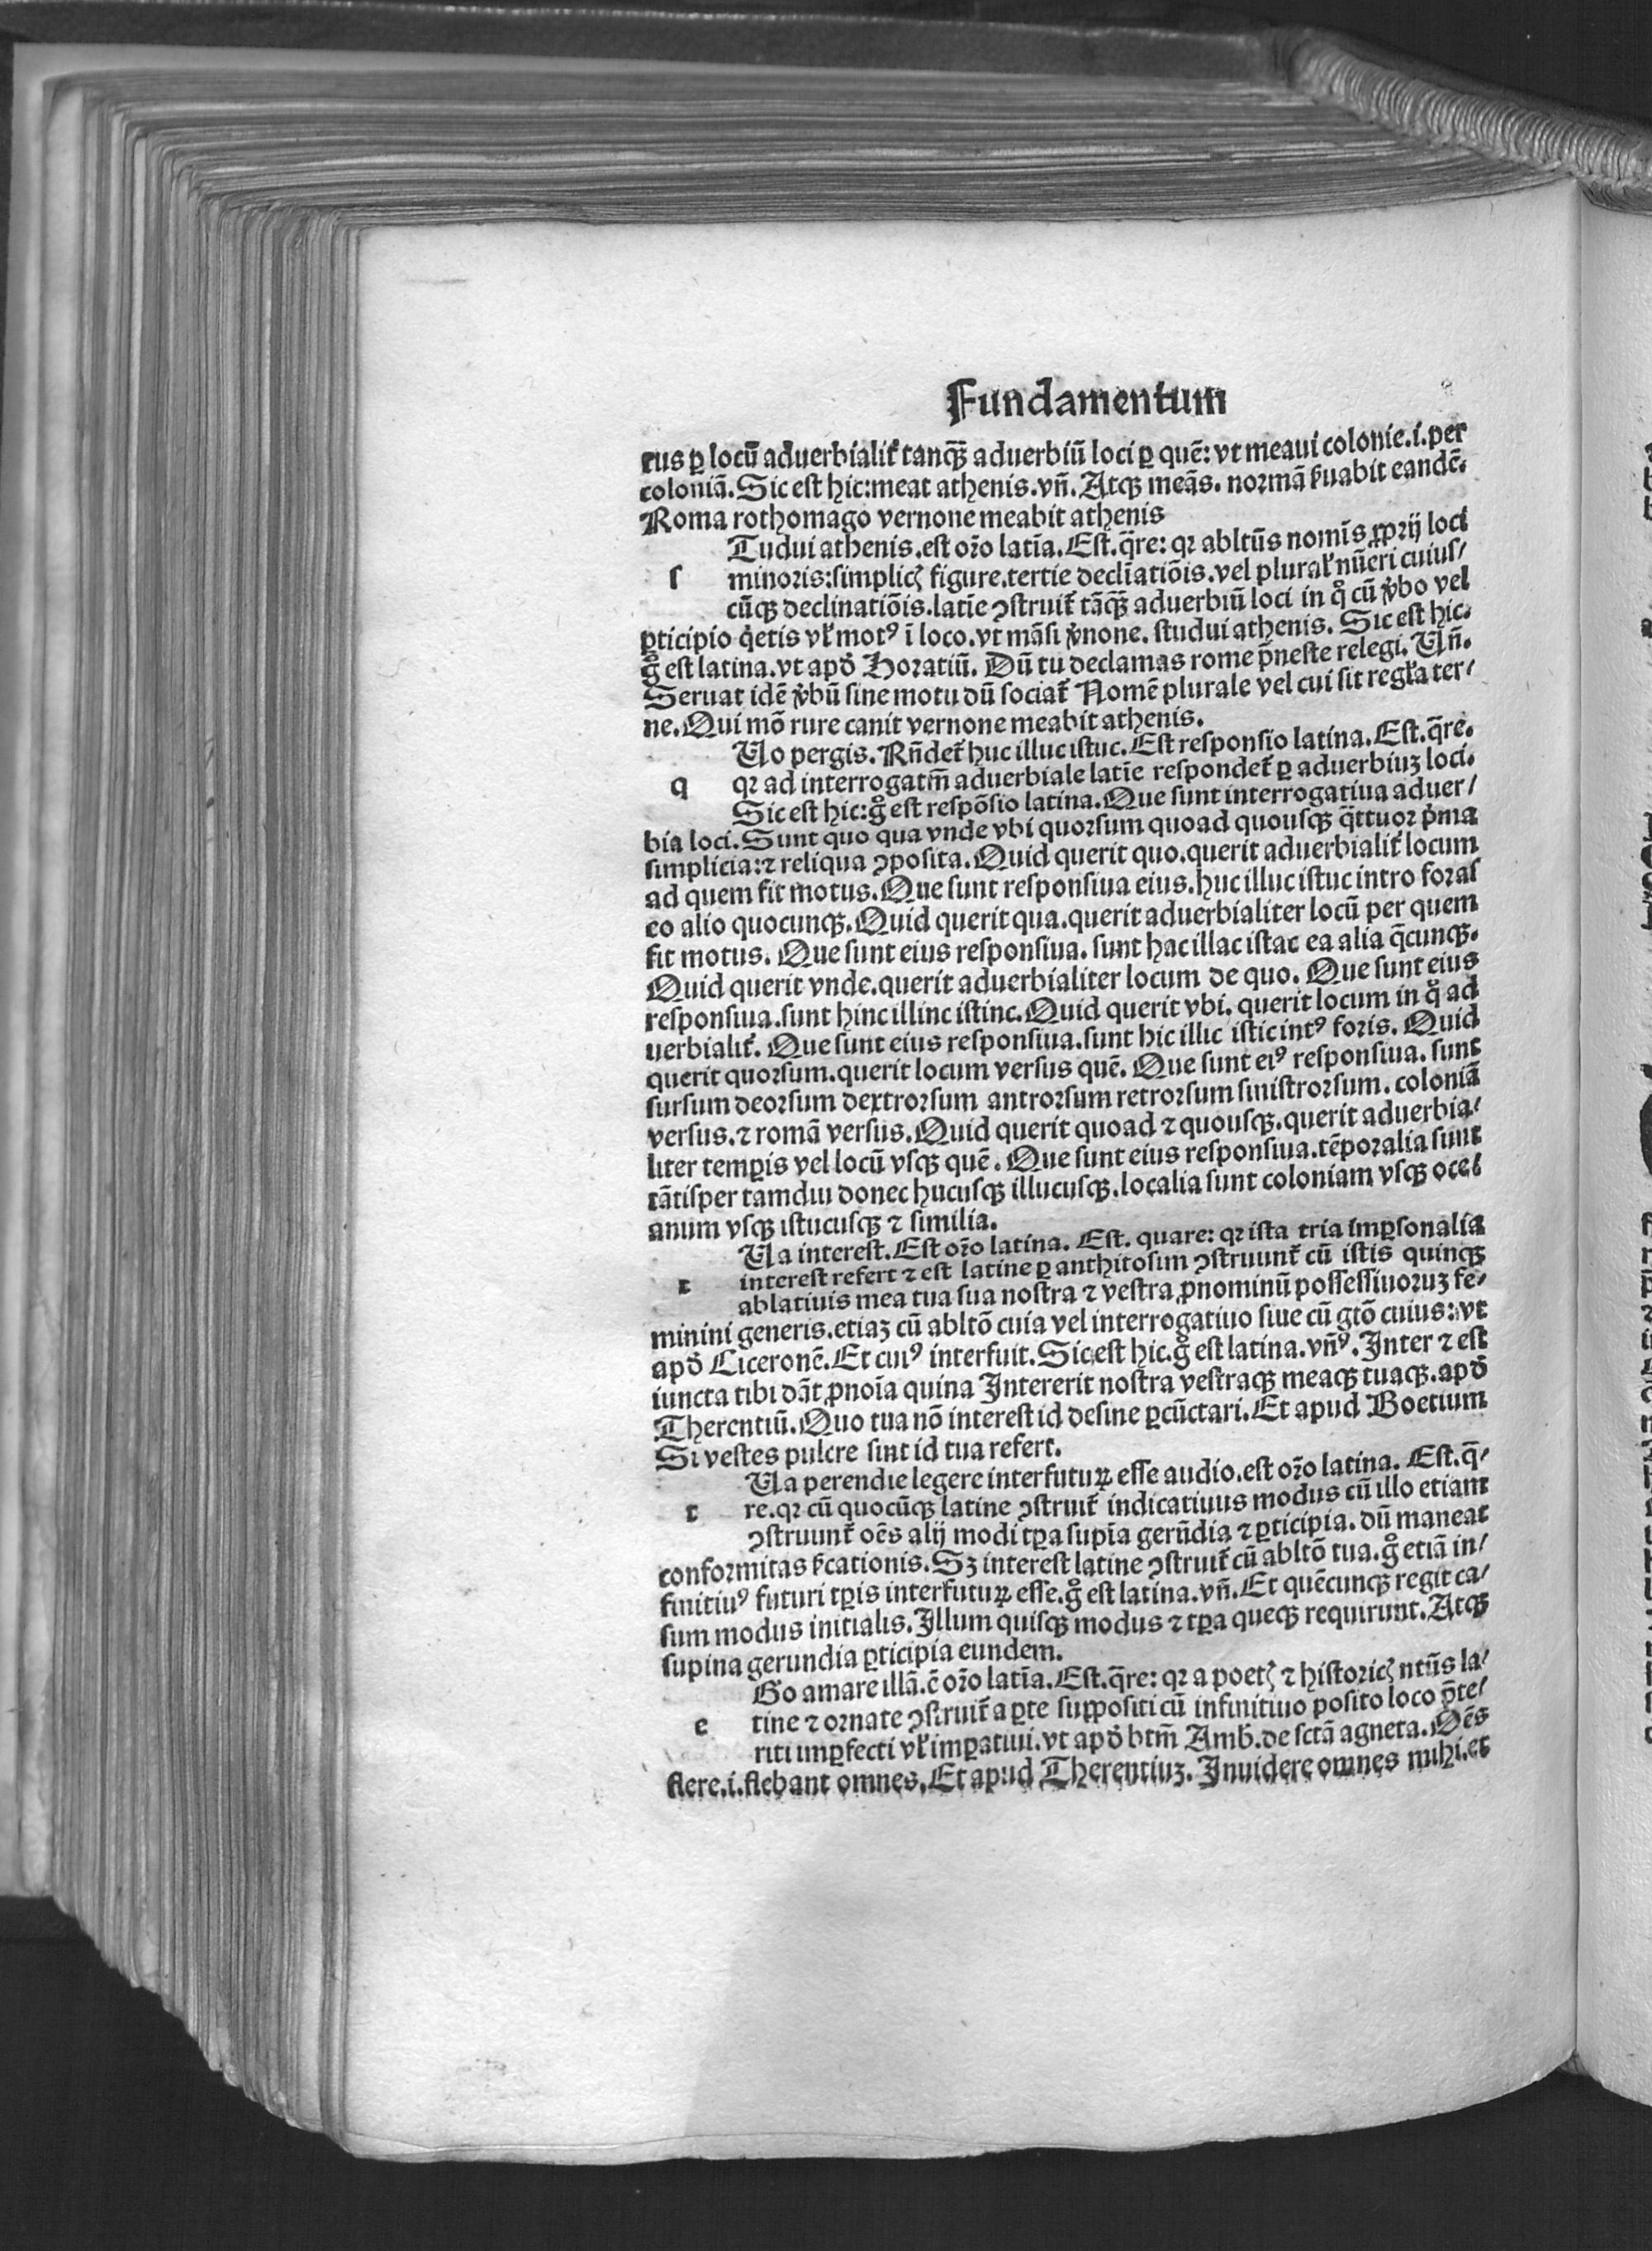 Fundamentum
tus ꝑ locū aduerbialit̃ tanqꝫ̃ aduerbiū loci ꝑ quē: vt meaui colonie.i.per
coloniā. Sic est hic: meat athenis. vñ. Atqꝫ meãs. normā ẜuabit eandē.
Roma rothomago vernone meabit athenis
Tudui athenis. est or̃o latĩa. Est. q̃re: qꝛ abltũs nomĩs ꝓprij loci
s minoris: simplicꝭ figure. tertie decliñatiõis. vel plural̃ nũeri cuius/
cũqꝫ declinatiõis. latĩe ꝯstruit̃ tãqꝫ̃ aduerbiũ loci in q̊ cũ v̓bo vel
ꝑticipio q̓etis vl̃ motꝰ ĩ loco. vt mãsi v̓none. studui athenis. Sic est hic.
g̊ est latina. vt apď Horatiũ. Dũ tu declamas rome p̃neste relegi. Vñ.
Seruat idẽ v̓bũ sine motu dũ sociat̃ Nomẽ plurale vel cui sit regl̃a ter/
ne. Qui mõ rure canit vernone meabit athenis.
Vo pergis. Rñdet̃ huc illuc istuc. Est responsio latina. Est. q̃re.
q qꝛ ad interrogatm̃ aduerbiale latĩe respondet̃ ꝑ aduerbiuꝫ loci.
Sic est hic: g̊ est respõsio latina. Que sunt interrogatiua aduer/
bia loci. Sunt quo qua vnde vbi quorsum quoad quousqꝫ q̃ttuor p̓ma
simplicia: ⁊ reliqua ꝯposita. Quid querit quo. querit aduerbialit̃ locum
ad quem fit motus. Que sunt responsiua eius. huc illuc istuc intro foras
eo alio quocunqꝫ. Quid querit qua. querit aduerbialiter locũ per quem
fit motus. Que sunt eius responsiua. sunt hac illac istac ea alia q̃cunqꝫ.
Quid querit vnde. querit aduerbialiter locum de quo. Que sunt eius
responsiua. sunt hinc illinc istinc. Quid querit vbi. querit locum in q̊ ad
uerbialit̃. Que sunt eius responsiua. sunt hic illic istic intꝰ foris. Quid
querit quorsum. querit locum versus quẽ. Que sunt eiꝰ responsiua. sunt
sursum deorsum dextrorsum antrorsum retrorsum sinistrorsum. coloniã
versus. ⁊ romã versus. Quid querit quoad ⁊ quousqꝫ. querit aduerbia/
liter temꝑis vel locũ vsqꝫ quẽ. Que sunt eius responsiua. tẽporalia sunt
tãtisper tamdiu donec hucusqꝫ illucusqꝫ. localia sunt coloniam vsqꝫ oce/
anum vsqꝫ istucusqꝫ ⁊ similia.
Va interest. Est or̃o latina. Est. quare: qꝛ ista tria imꝑsonalia
t interest refert ⁊ est latine ꝑ anthitosim ꝯstruunt̃ cũ istis quinqꝫ
ablatiuis mea tua sua nostra ⁊ vestra ꝓnominũ possessiuoruꝫ fe/
minini generis. etiaꝫ cũ abltõ cuia vel interrogatiuo siue cũ gtõ cuius: vt
apď Ciceronẽ. Et cuiꝰ interfuit. Sic est hic. g̊ est latina. vñꝰ. Inter ⁊ est
iuncta tibi dãt ꝓnoĩa quina Intererit nostra vestraqꝫ meaqꝫ tuaqꝫ. apď
Therentiũ. Quo tua nõ interest id desine ꝑcũctari. Et apud Boetium
Si vestes pulcre sint id tua refert.
Va perendie legere interfuturꝝ esse audio. est or̃o latina. Est. q̃/
t re. qꝛ cũ quocũqꝫ latine ꝯstruit̃ indicatiuus modus cũ illo etiam
ꝯstruunt̃ oẽs alij modi tꝑa supĩa gerũdia ⁊ ꝑticipia. dũ maneat
conformitas ẜcationis. Sꝫ interest latine ꝯstruit̃ cũ abltõ tua. g̊ etiã in/
finitiuꝰ futuri tꝑis interfuturꝝ esse. g̊ est latina. vñ. Et quẽcunqꝫ regit ca/
sum modus initialis. Illum quisqꝫ modus ⁊ tꝑa queqꝫ requirunt. Atqꝫ
supina gerundia ꝑticipia eundem.
Go amare illã. ẽ or̃o latĩa. Est. q̃re: qꝛ a poetꝭ ⁊ historicꝭ ntũs la/
e tine ⁊ ornate ꝯstruit̃ a ꝑte suppositi cũ infinitiuo posito loco p̃te/
riti imꝑfecti vl̃ imꝑatiui. vt apď btm̃ Amb. de sctã agneta. Oẽs
flere.i. flebant omnes. Et apud Therentiuꝫ. Inuidere omnes mihi. et